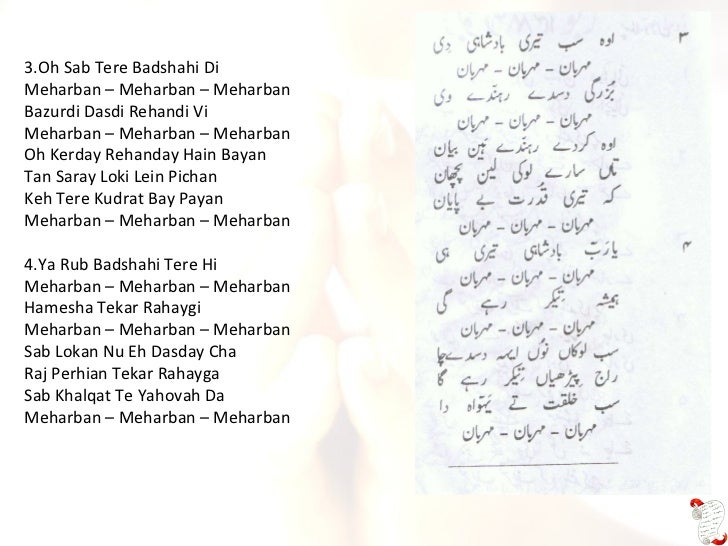 3.Oh Sab Tere Badshahi Di
Meharban – Meharban – Meharban
Bazurdi Dasdi Rehandi Vi
Meharban – Meharban – Meharban
Oh Kerday Rehanday Hain Bayan
Tan Saray Loki Lein Pichan
Keh Tere Kudrat Bay Payan
Meharban – Meharban – Meharban
4.Ya Rub Badshahi Tere Hi
Meharban – Meharban – Meharban
Hamesha Tekar Rahaygi
Meharban – Meharban – Meharban
Sab Lokan Nu Eh Dasday Cha
Raj Perhian Tekar Rahayga
Sab Khalqat Te Yahovah Da
Meharban – Meharban – Meharban
۳ اوہ سب تیری بادشاہی دِی
مہربان – مہربان – مہربان
بُزرگی دسدے رہندے وی
مہربان – مہربان – مہربان
اوہ کردے رہندے ہَین بیان
تاں سارے لوکی لَین پچھان
کہ تیری قُدرت بے پایان
مہربان – مہربان – مہربان
۴ یا رَبّ بادشاہی تیری ہی
مہربان – مہربان – مہربان
ہمیشہ تِیکر رہے گی
مہربان – مہربان – مہربان
سب لوکاں نُوں ایہہ دسدے چا
راج پِیڑھیاں تِیکر رہے گا
سب خلقت تے یَہوَاہ دا
مہربان – مہربان – مہربان